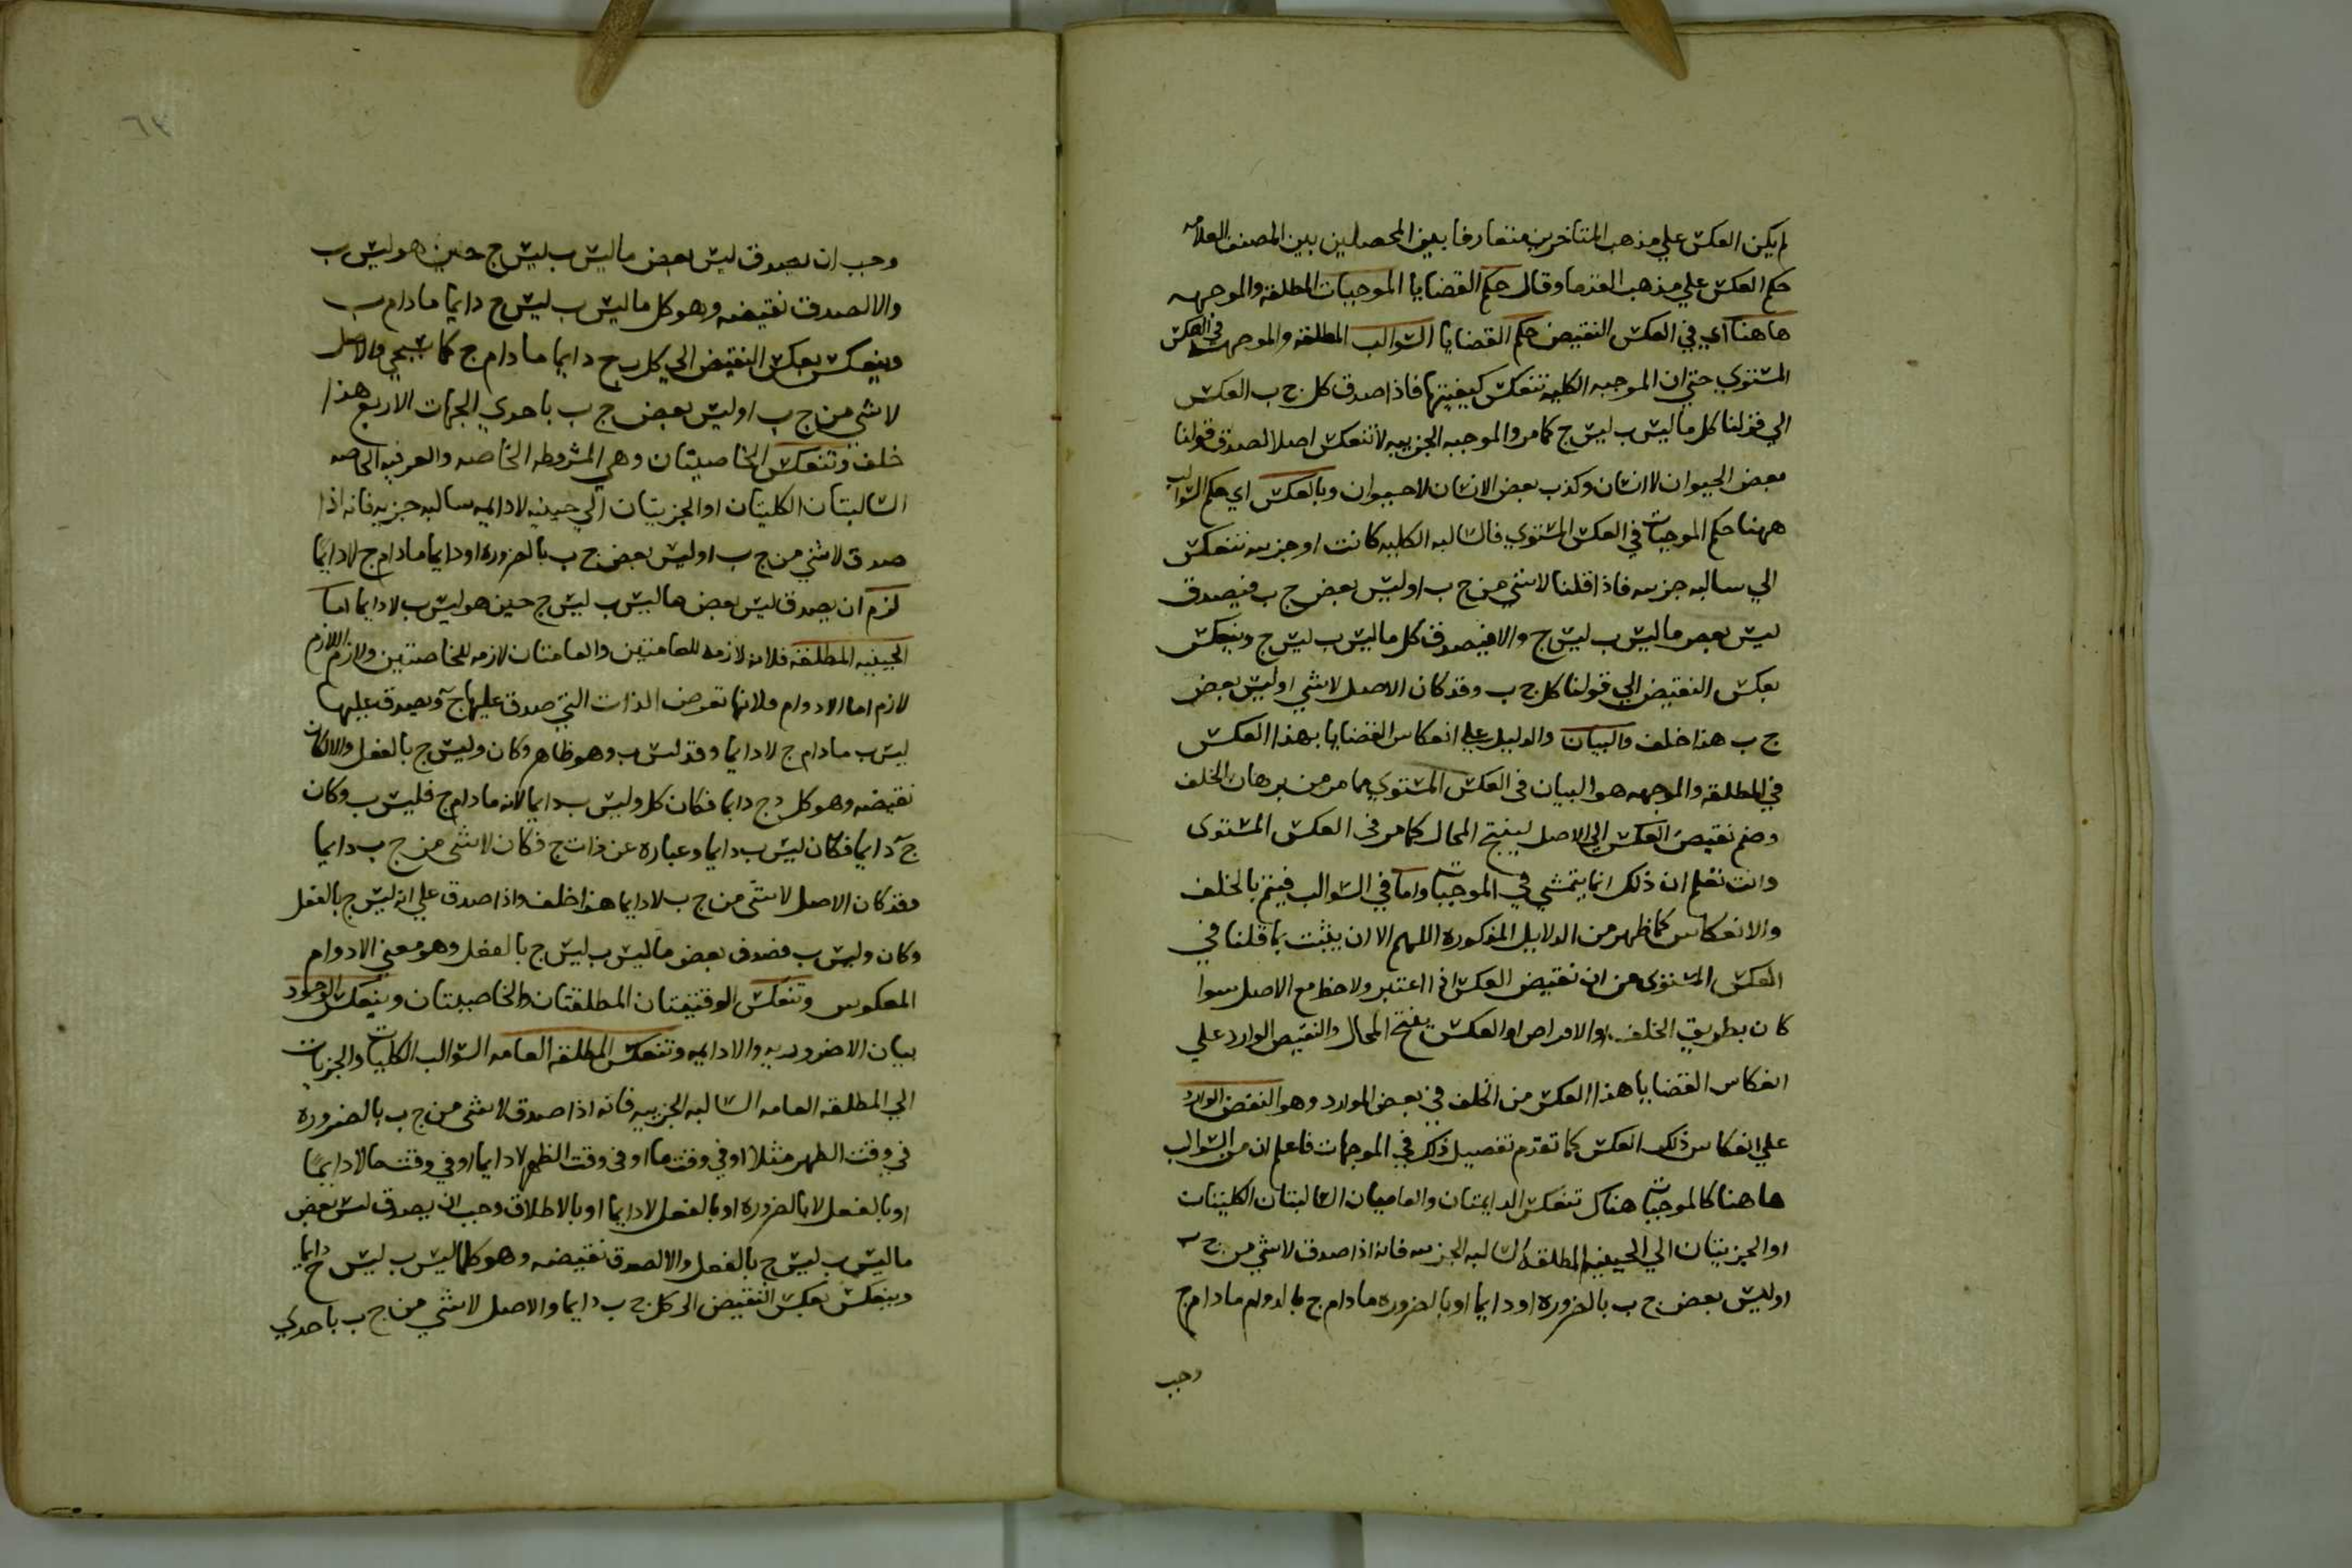 لم يكن العكس علي مذهب المتاخرين متعارفا بين المحصلين بين المصنف العلامه
حكم العكس علي مذهب القدما وقال حكم القضايا الموجبات المطلقه والموجهه
هاهنا اي في العكس النقيض حكم القضايا السوالب المطلقه والموجهه في العكس
المستوي حتي ان الموجبه الكليه تنعكس كيفيتها فاذا صدق كل ج ب العكس
الي قولنا كل ما ليس ب ليس ج كما مر والموجبه الجزييه لا تنعكس اصلا لصدق قولنا
بعض الحيوان لا انسان وكذب بعض الانسان لا حيوان وبالعكس اي حكم السوالب
ههنا حكم الموجبات في العكس المستوي فالسالبه الكليه كانت او جزييه تنعكس
الي سالبه جزييه فاذا قلنا لا شي من ج ب او ليس بعض ج ب فيصدق
ليس بعض ما ليس ب ليس ج والا فيصدق كل ما ليس ب ليس ج وينعكس
بعكس النقيض الي قولنا كل ج ب وقد كان الاصل لا شي او ليس بعض
ج ب هذا خلف والبيان والدليل علي انعكاس القضايا بهذا العكس
في المطلقه والموجهه هو البيان في العكس المستوي مما مر من برهان الخلف
وضم نقيض العكس الي الاصل لينتج المحال كما مر في العكس المستوي
وانت تعلم ان ذلك انما يتمشي في الموجبات واما في السوالب فيتم بالخلف
والانعكاس كما ظهر من الدلايل المذكوره اللهم الا ان يثبت بما قلنا في
العكس المستوي من ان نقيض العكس اذا اعتبر ولاحظ مع الاصل سوا
كان بطريق الخلف او الافراض او العكس ينتج المحال والنقيض الوارد علي
انعكاس القضايا هذا العكس من الخلف في بعض الموارد وهو النقض الوارد
علي انعكاس ذلك العكس كما تقدم تفصيل ذلك في الموجهات فاعلم ان من السوالب
هاهنا كالموجبات هناك تنعكس الدايمتان والعاميتان السالبتان الكليتان
او الجزييتان الي الحينيه المطلقه السالبه الجزييه فانه اذا صدق لا شي من ج ب
او ليس بعض ج ب بالضروره او دايما او بالضروره ما دام ج بالدوام ما دام ج
وجب
٦٣
وجب ان يصدق ليس بعض ما ليس ب ليس ج حين هو ليس ب
والا لصدق نقيضه وهو كل ما ليس ب ليس ج دايما ما دام ب
وينعكس بعكس النقيض الي كل ج ب دايما ما دام ج كما سيجي والاصل
لا شي من ج ب او ليس بعض ج ب باحدي الجهات الاربع هذا
خلف وتنعكس الخاصيتان وهي المشروطه الخاصه والعرفيه الخاصه
السالبتان الكليتان او الجزييتان الي حينيه لا دايمه سالبه جزييه فانه اذا
صدق لا شي من ج ب او ليس بعض ج ب بالضروره او دايما ما دام ج لا دايما
لزم ان يصدق ليس بعض ما ليس ب ليس ج حين هو ليس ب لا دايما اما
الحينيه المطلقه فلانه لازمه للعامتين والعامتان لازمه للخاصتين ولازم اللازم
لازم اما اللادوام فلانها تفرض الذات التي صدق عليها ج د ويصدق عليها
ليس ب ما دام ج لا دايما وقد ليس ب وهو ظاهر وكان د ليس ج بالفعل والا لكان
نقيضه وهو كل د ج دايما فكان كل د ليس ب دايما لانه ما دام ج فليس ب وكان
ج د دايما فكان ليس ب دايما و عباره عن ذات ج فكان لا شي من ج ب دايما
وقد كان الاصل لا شي من ج ب لا دايما هذا خلف واذا صدق علي انه ليس ج بالفعل
وكان د ليس ب فصدق بعض ما ليس ب ليس ج بالفعل وهو معني اللادوام
المعكوس وتنعكس الوقتيتان المطلقتان والخاصيتان وينعكس الوجود
بيان اللاضروريه واللادايمه وتنعكس المطلقه العامه السوالب الكليات والجزييات
الي المطلقه العامه السالبه الجزييه فانه اذا صدق لا شي من ج ب بالضروره
في وقت الظهر مثلا او في وقت ما او في وقت الظهر لا دايما او في وقت ما لا دايما
او بالفعل لا بالضروره او بالفعل لا دايما او بالاطلاق وجب ان يصدق ليس بعض
ما ليس ب ليس ج بالفعل والا لصدق نقيضه وهو كلما ليس ب ليس ج دايما
وينعكس بعكس النقيض الي كل ج ب دايما والاصل لا شي من ج ب باحدي